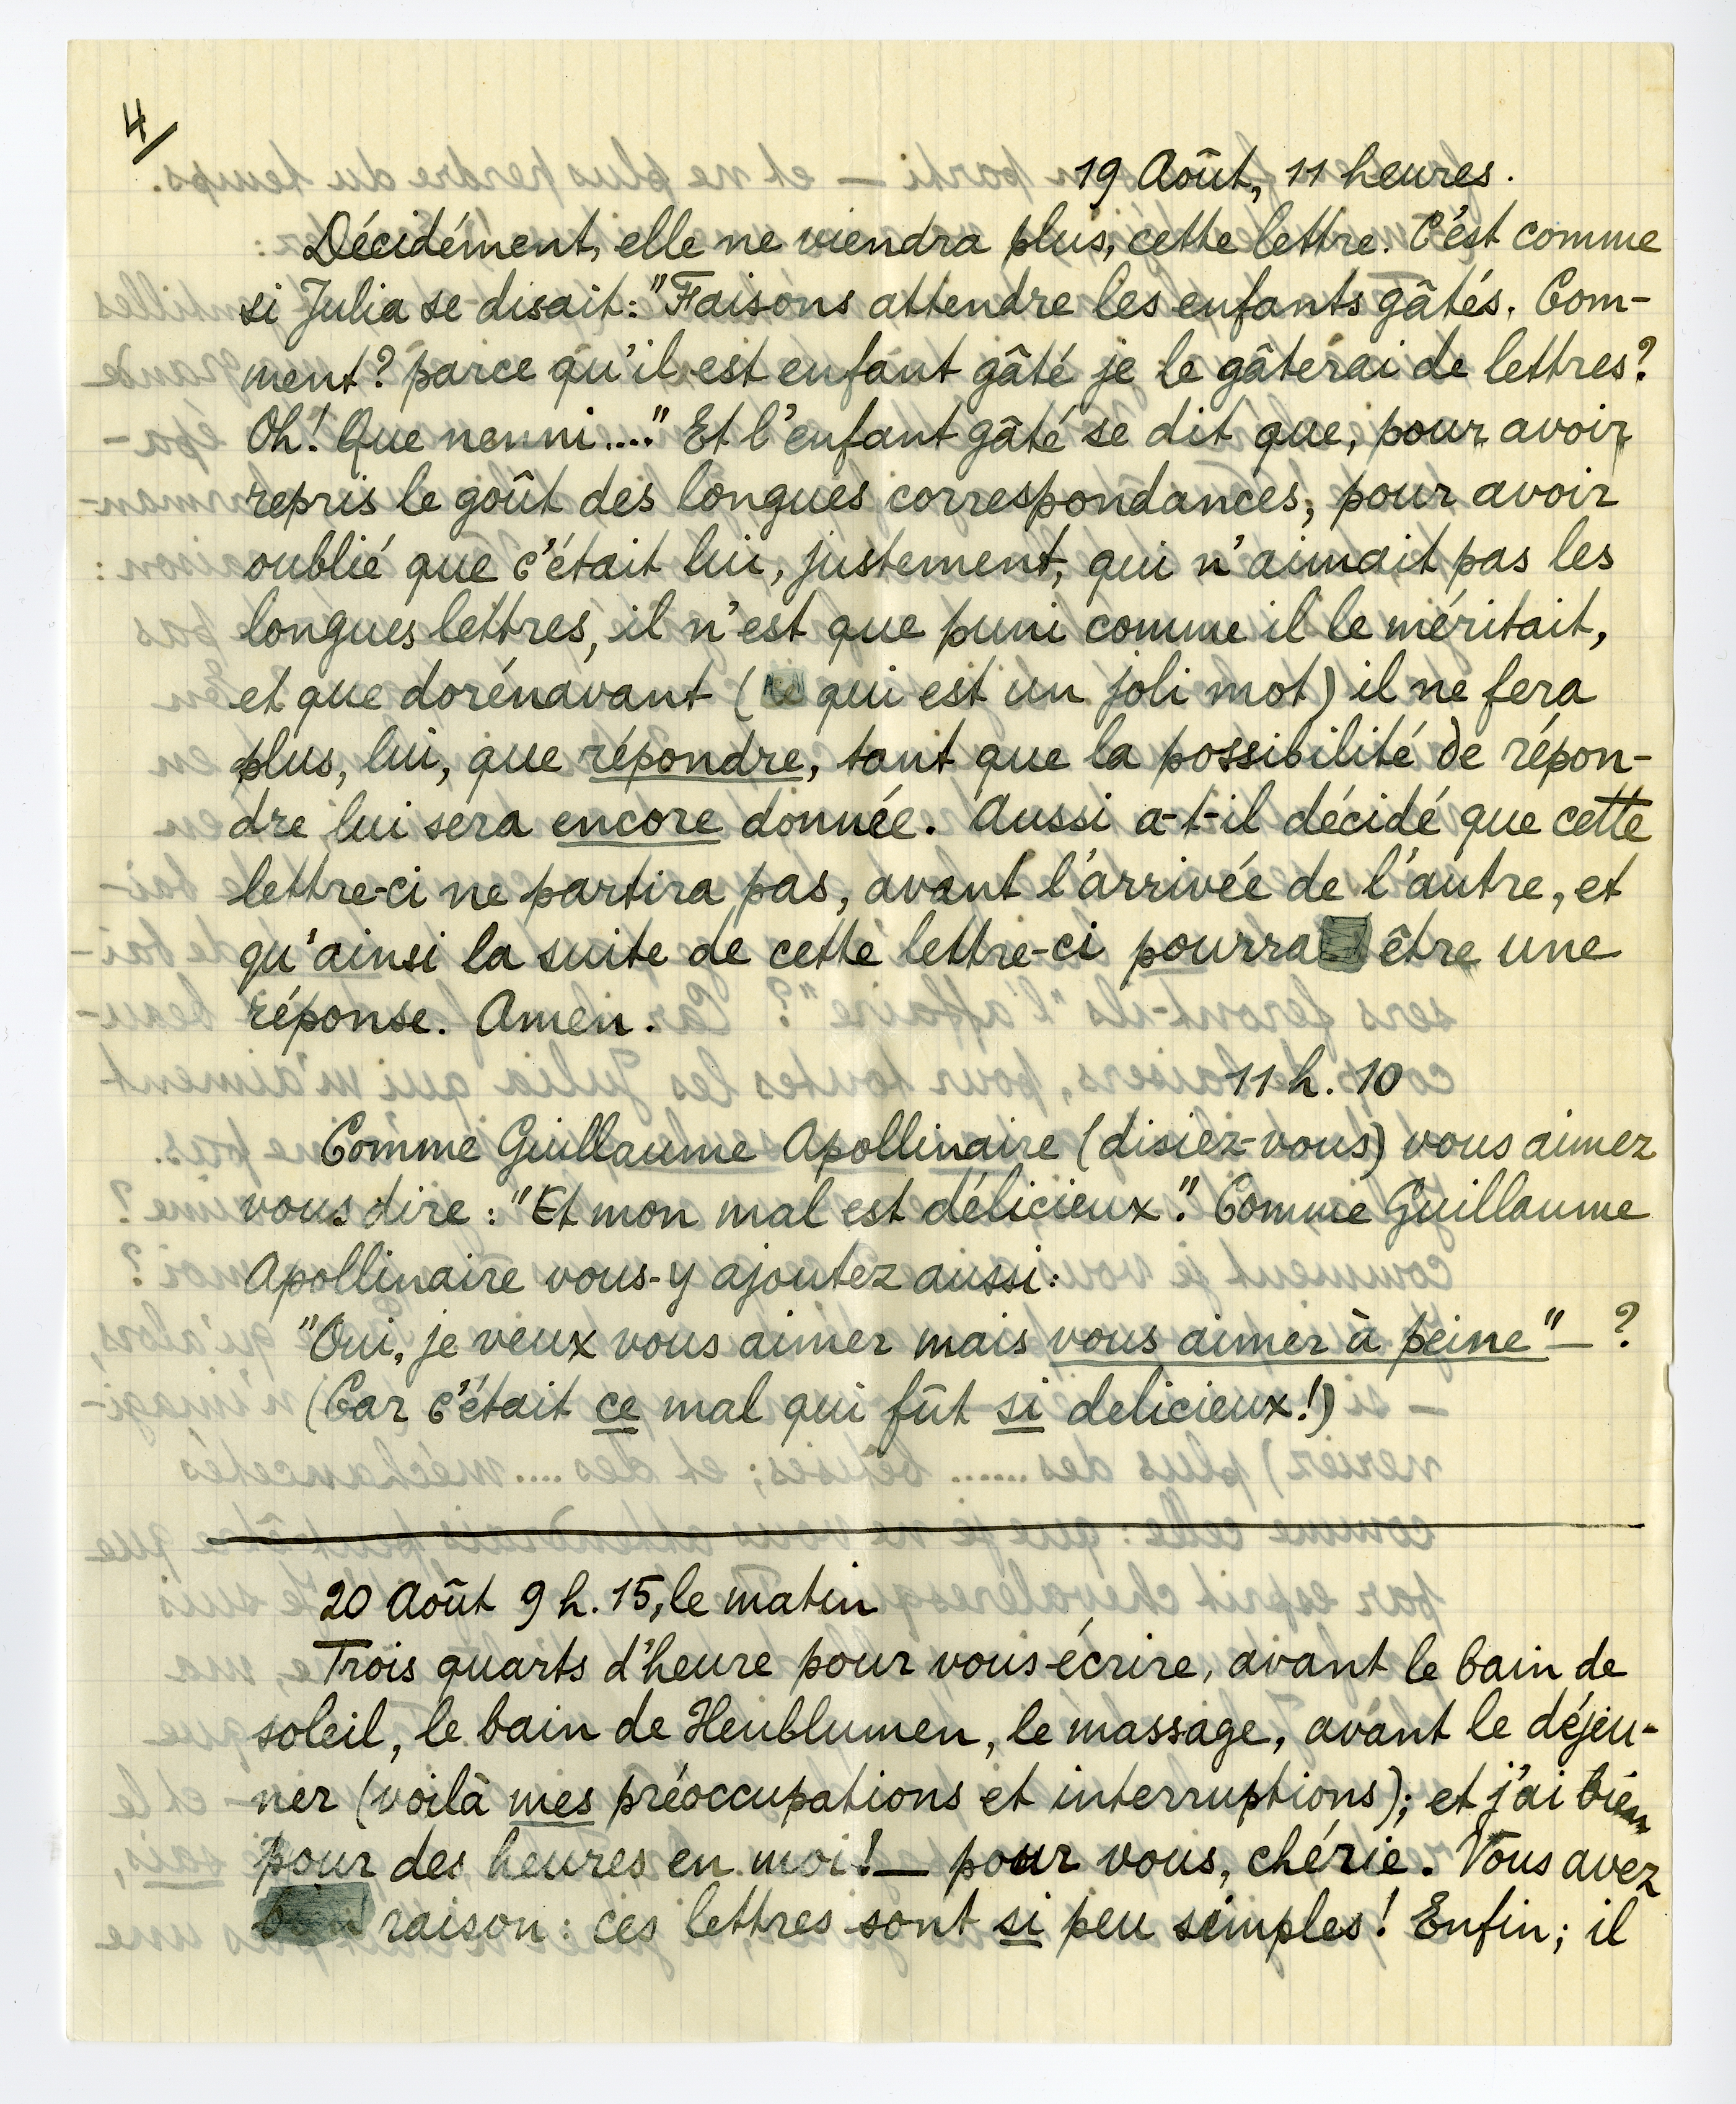 4/
19 Août, 11 heures.
Décidément, elle ne viendra plus, cette lettre. C'est comme
si Julia se disait: "Faisons attendre les enfants gâtés. Com-
ment? parce qu'il est enfant gâté je le gâterai de lettres?
Oh! Que nenni...." Et l'enfant gâté se dit que, pour avoir
repris le goût des longues correspondances, pour avoir
oublié que c'était lui, justement, qui n'aimait pas les
longues lettres, il n'est que puni comme il le méritait,
et que dorénavant ( qui est un joli mot) il ne fera
plus, lui, que répondre, tant que la possibilité de répon-
dre lui sera encore donnée. Aussi a-t-il décidé que cette
lettre-ci ne partira pas, avant l'arrivée de l'autre, et
qu'ainsi la suite de cette lettre-ci pourra être une
réponse. Amen.
11 h. 10
Comme Guillaume Apollinaire (disiez-vous) vous aimez
vous dire: "Et mon mal est délicieux". Comme Guillaume
Apollinaire vous-y ajoutez aussi:
"Oui, je veux vous aimer mais vous aimer à peine" — ?
(Car c'était ce mal qui fût si delicieux!)
20 Août 9 h. 15, le matin
Trois quarts d'heure pour vous écrire, avant le bain de
soleil, le bain de Heublumen, le massage, avant le déjeu-
ner (voilà mes préoccupations et interruptions); et j'ai bien
pour des heures en moi! — pour vous, chérie. Vous avez
raison: ces lettres sont si peu simples! Enfin; il